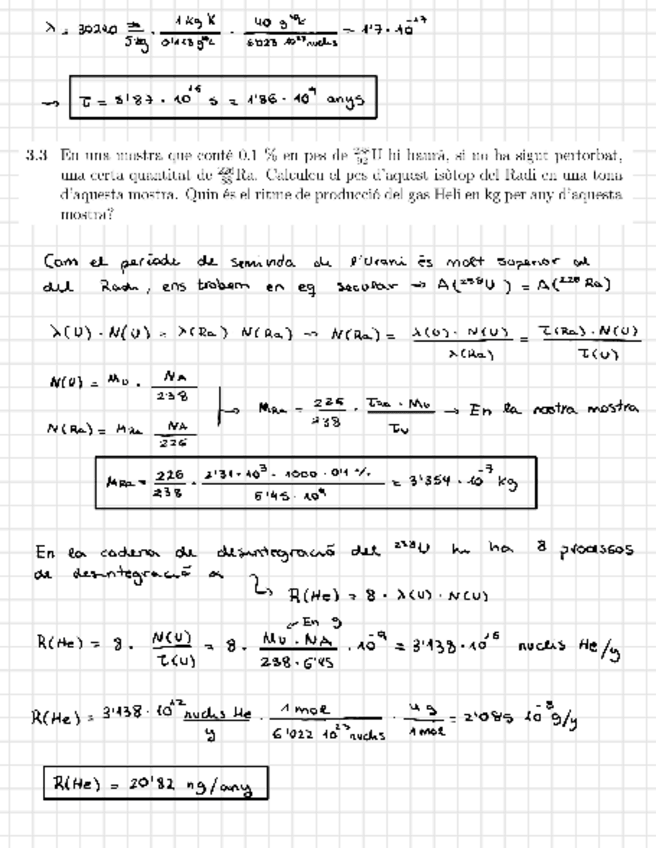 λ = 30240 · 1 kg K · 40 g = 1'7 · 10⁻¹⁷
→ τ = 5'87 · 10¹⁶ s = 1'86 · 10⁹ anys
3.3 En una mostra que conté 0.1 % en pes de ²³⁸₉₂U hi haurà, si no ha sigut pertorbat,
una certa quantitat de ²²⁶₈₈Ra. Calculeu el pes d'aquest isòtop del Radi en una tona
d'aquesta mostra. Quin és el ritme de producció del gas Heli en kg per any d'aquesta
mostra?
Com el període de semivida de l'Urani és molt superior al
del Radi, ens trobem en eq secular → A(²³⁸U) = A(²²⁶Ra)
λ(U) · N(U) = λ(Ra) N(Ra) → N(Ra) = λ(U) · N(U) / λ(Ra) = τ(Ra) · N(U) / τ(U)
N(U) = M_U · NA / 238
N(Ra) = M_Ra NA / 226
→ M_Ra = 226 / 238 · τ_Ra · M_U / τ_U → En la nostra mostra
M_Ra = 226 / 238 · 2'31 · 10³ · 1000 · 0'1 % / 6'45 · 10⁹ = 3'354 · 10⁻⁷ kg
En la cadena de desintegració del ²³⁸U hi ha 8 processos
de desintegració α → R(He) = 8 · λ(U) · N(U)
R(He) = 8 · N(U) / τ(U) = 8 · M_U · NA / 238 · 6'45 · 10⁻⁹ = 3'138 · 10¹⁵ nuclis He/y
En g
R(He) = 3'138 · 10¹² nuclis He / y · 1 mol / 6'022 10²³ nuclis · 4 g / 1 mol = 2'085 10⁻⁸ g/y
R(He) = 20'82 ng/any